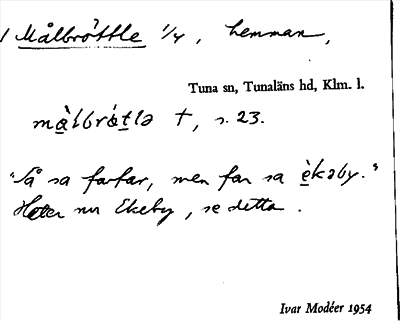 1 Målbröttle 1/4, hemman,
Tuna sn, Tunaläns hd, Klm. l.
mà̱lbrát̲lə †, s. 23.
"Så sa farfar, men far sa è̱kəby."
Heter nu Ekeby, se detta.
Ivar Modéer 1954